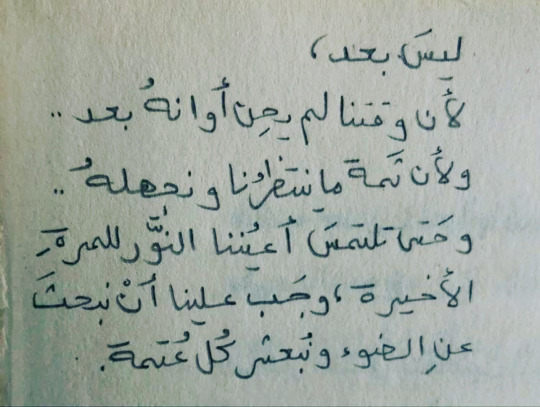 ليسَ بعد،
لأن وقتنا لم يحِن أوانهُ بعد ..
ولأن ثَمة ما ينتظرُنا ونجهلهُ ..
وحَتى تلتمسَ أعيُننا النّور للمرةِ
الأخيرة، وجَب علينا أنْ نبحثَ
عنِ الضوء ونُبعثر كُل عُتمة.